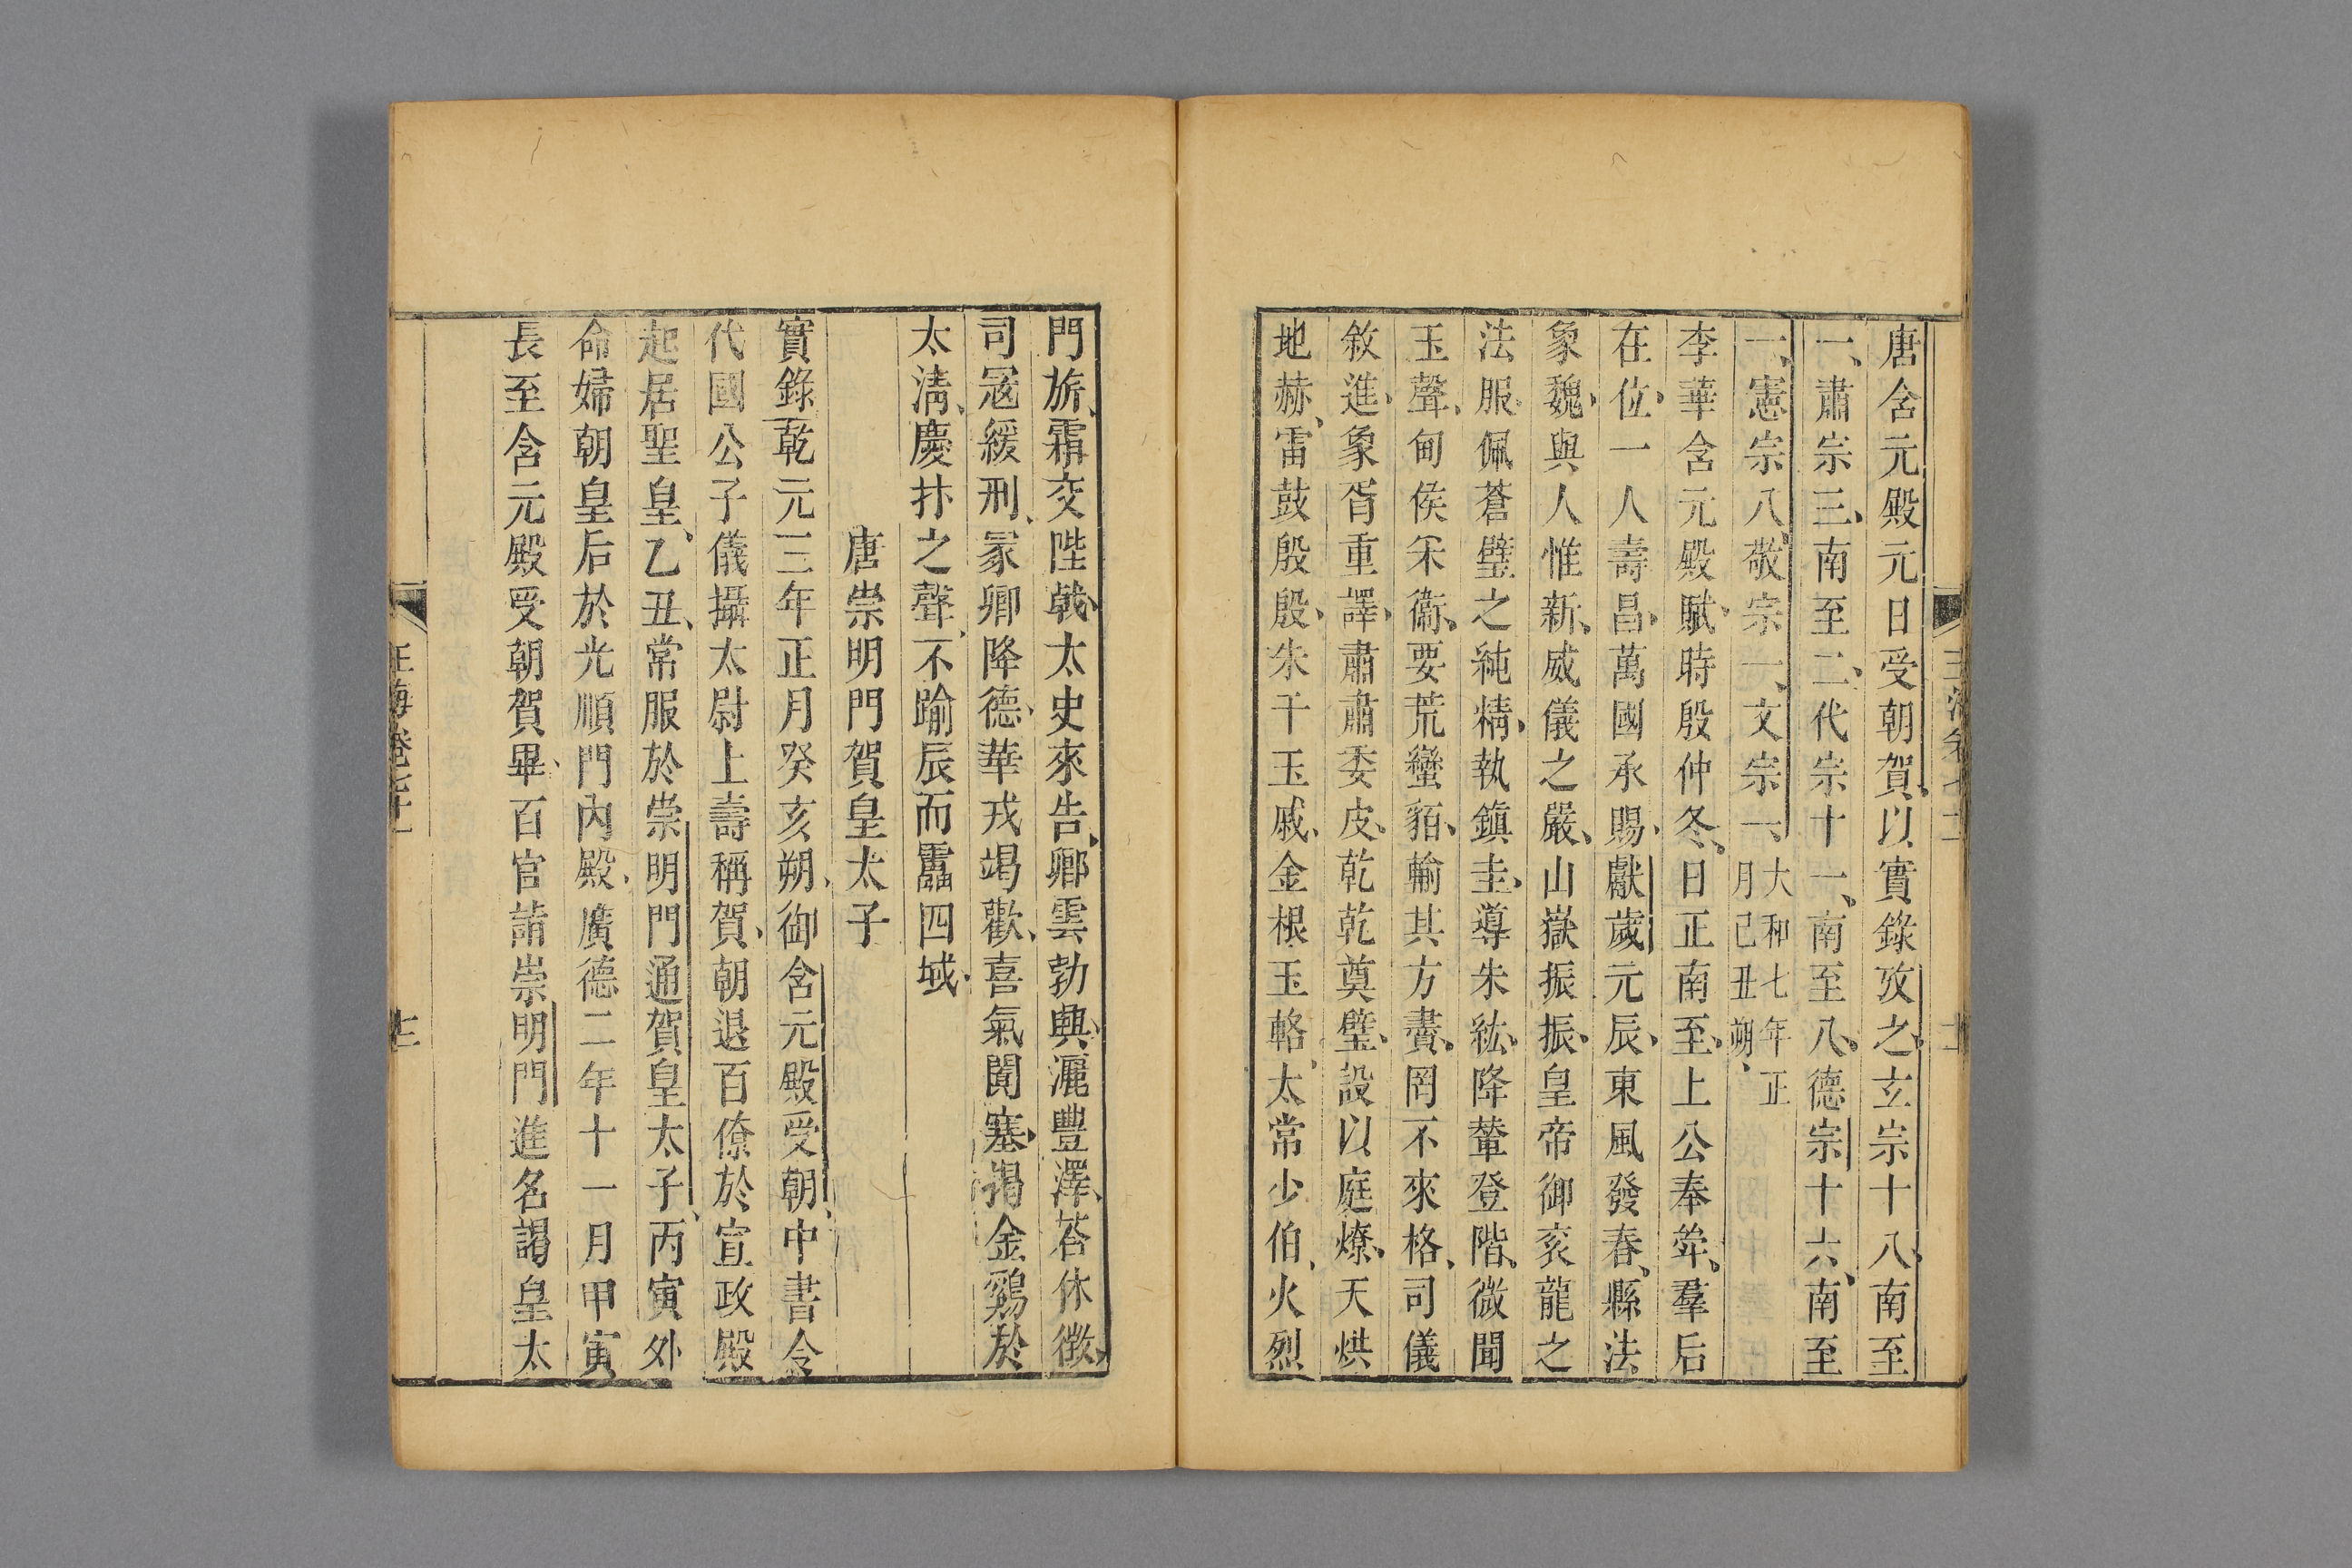 唐含元殿元日受朝賀以實錄攷之玄宗十八南至
一肅宗三南至二代宗十一南至八德宗十六南至
一憲宗八敬宗一文宗一大和七年正
月己丑朔
李華含元殿賦時殷仲冬日正南至上公奉斝羣后
在位一人壽昌萬國承賜獻歲元辰東風發春縣法
象魏與人惟新威儀之嚴山嶽振振皇帝御袞龍之
法服佩蒼璧之純精執鎮圭導朱紘降輦登階微聞
玉聲甸侯采衞要荒蠻貊輸其方賮罔不來格司儀
敘進象胥重譯肅肅委皮乾乾奠璧設以庭燎天烘
地赫雷鼓殷殷朱干玉戚金根玉輅太常少伯火烈
門旂霜交陛戟太史來告卿雲勃興灑豐澤荅休徵
司寇緩刑冢卿降德華戎竭歡喜氣闐塞揭金鷄於
太淸慶抃之聲不踰辰而靁四域
唐崇明門賀皇太子
實錄乾元三年正月癸亥朔御含元殿受朝中書令
代國公子儀攝太尉上壽稱賀朝退百僚於宣政殿
起居聖皇乙丑常服於崇明門通賀皇太子丙寅外
命婦朝皇后於光順門內殿廣德二年十一月甲寅
長至含元殿受朝賀畢百官請崇明門進名謁皇太
玉海卷七十一